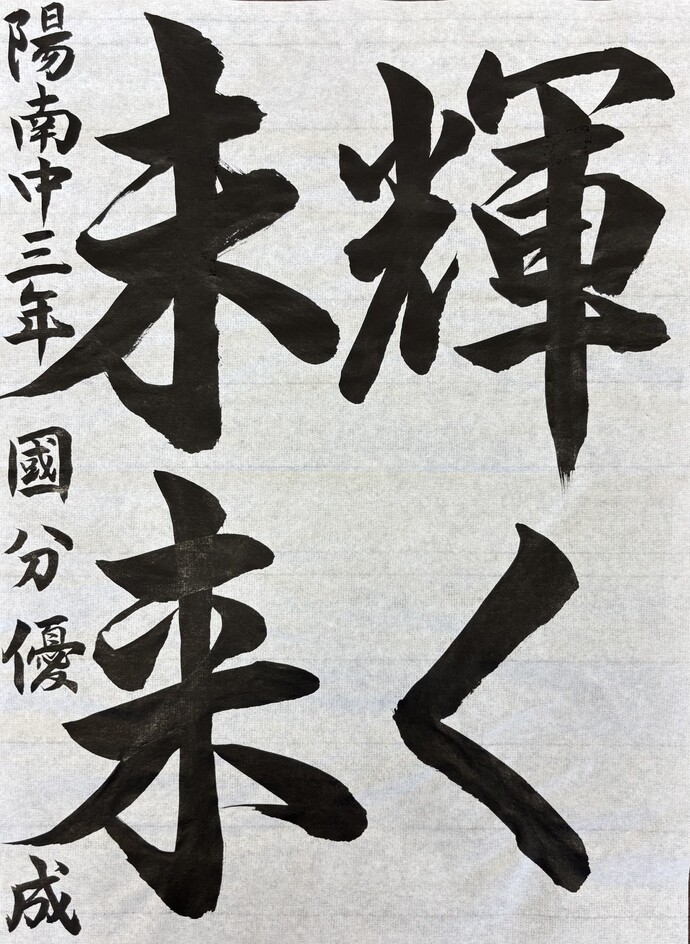 輝く
未来
陽南中三年 國分優成